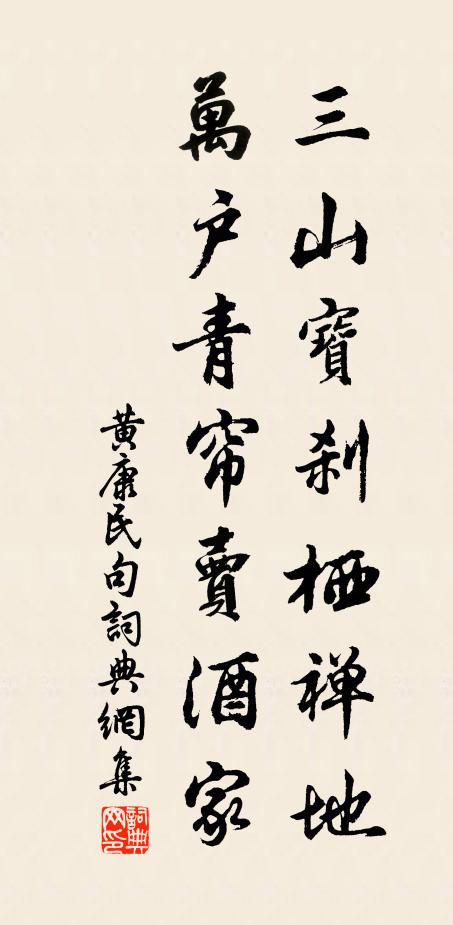 三山寶刹栖禅地
萬户青帘賣酒家
黄康民句詞典網集
詞典网印